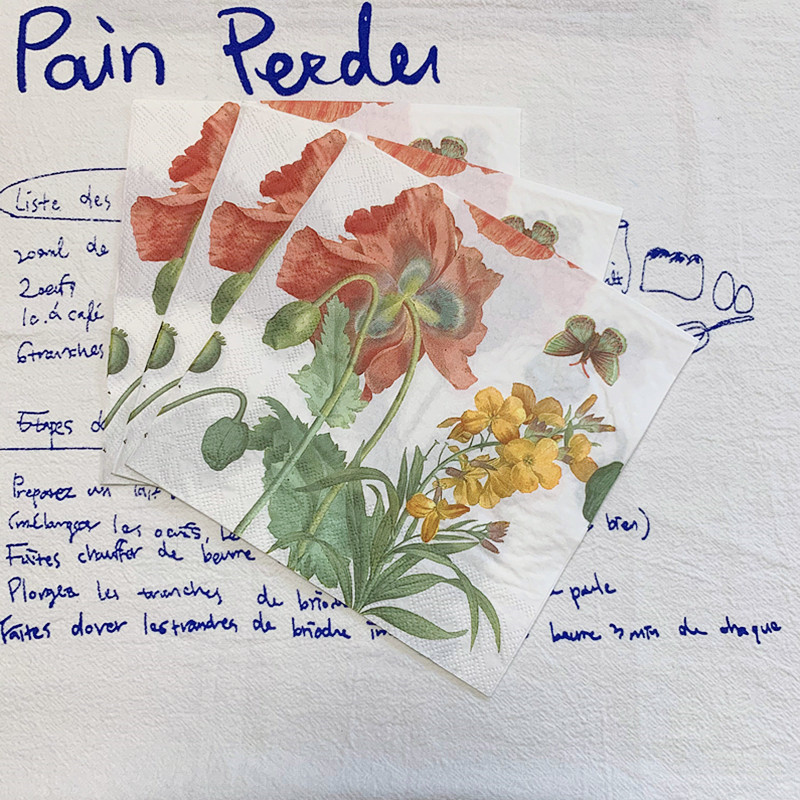 Pain Perdu
Liste des
20ml de
2 oeufs
1c. à café
6 tranches
Etapes d
Preparez un lait
(mélanger les oeufs, le bien)
Faites chauffer de beurre
Plongez les tranches de brioche
Faites dorer les tranches de brioche beurre 3 min de chaque